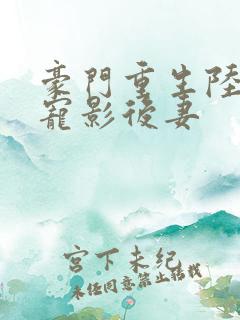 豪門重生陸
寵影後妻
宮下未紀
未经同意禁止转载